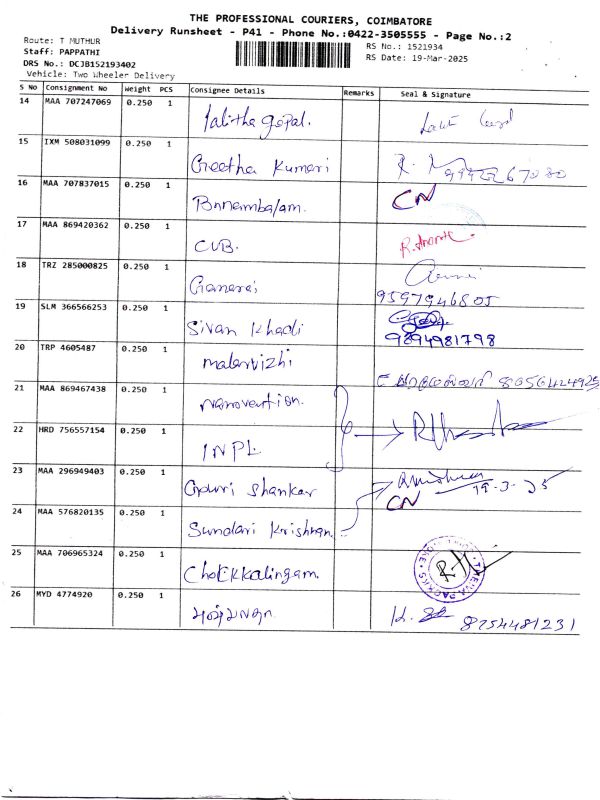 THE PROFESSIONAL COURIERS, COIMBATORE
Delivery Runsheet - P41 - Phone No.:0422-3505555 - Page No.:2
Route: T MUTHUR
RS No.: 1521934
Staff: PAPPATHI
RS Date: 19-Mar-2025
DRS No.: DCJB152193402
Vehicle: Two Wheeler Delivery
S No Consignment No Weight PCS Consignee Details Remarks Seal & Signature
14 MAA 707247069 0.250 1 Lalitha gopal.
15 IXM 508031099 0.250 1 Geetha Kumari
16 MAA 707837015 0.250 1 Ponnambalam. CN
17 MAA 869420362 0.250 1 CUB.
18 TRZ 285000825 0.250 1
9597946805
19 SLM 366566253 0.250 1 Sivan Khadi
9894981798
20 TRP 4605487 0.250 1 malarvizhi
21 MAA 869467438 0.250 1 nanovention.
22 HRD 756557154 0.250 1 INPL
23 MAA 296949403 0.250 1 Gowri Shankar 19-3-25
CN
24 MAA 576820135 0.250 1 Sundari Krishnan.
25 MAA 706965324 0.250 1 Chokkalingam.
26 MYD 4774920 0.250 1
8754481231